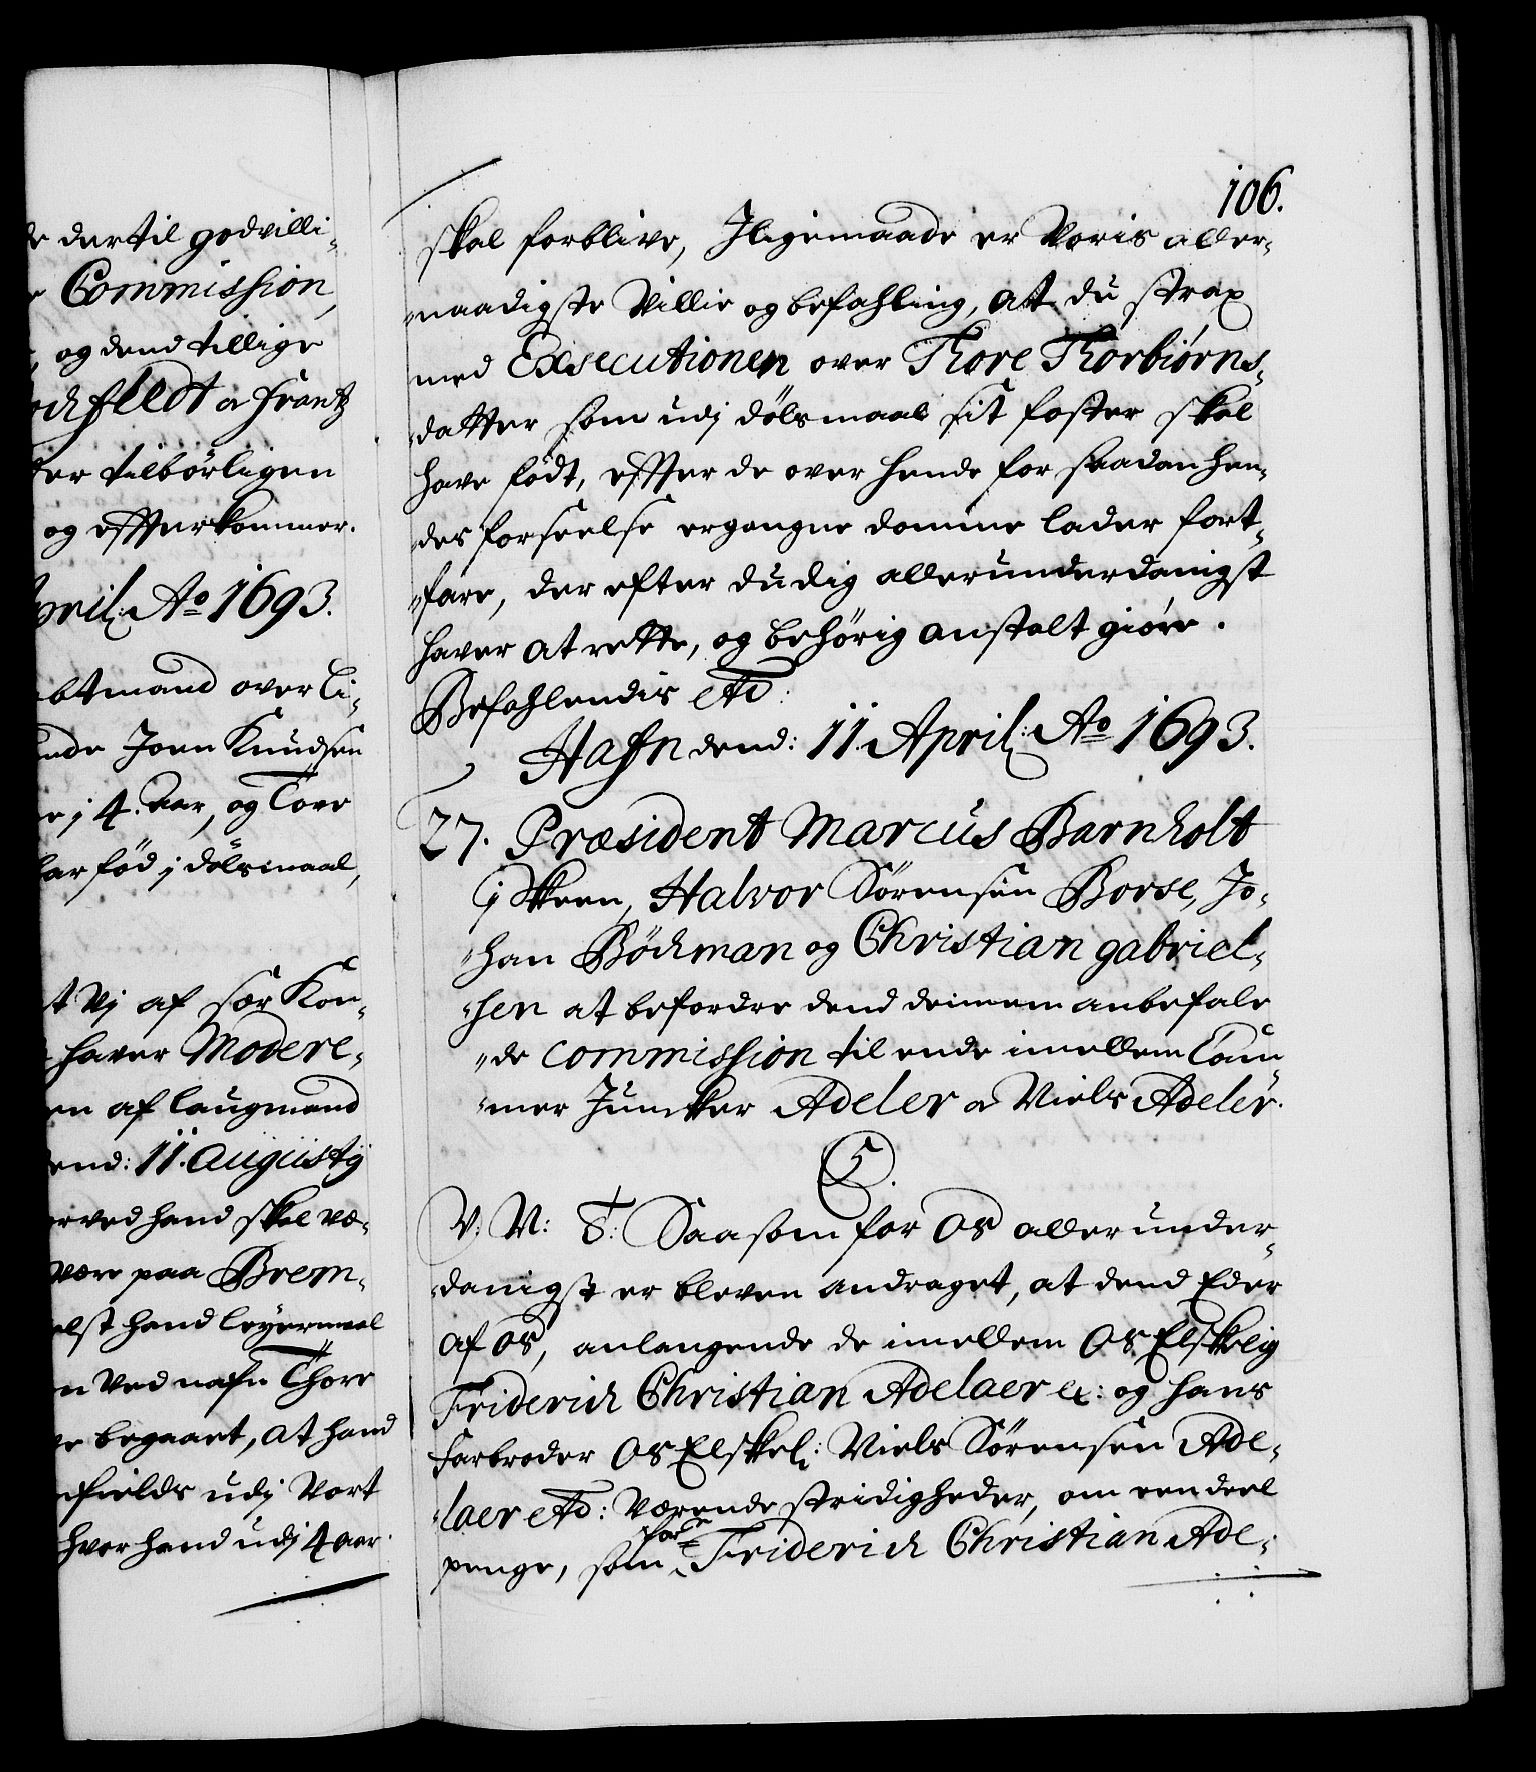 e dertil godvilli-
Commission,
og dend tillige
chfledt a Frantz
er tilbörligen
og effterkommer.
pril: Ao 1693.
btmand over Li-
nde Joen Knudsen
e j 4. Aar, og Tore
ar fød j dølsmaal,
t Vj af sær Kon-
haver Modere-
en af Laugmand
end: 11. Augustij
erved hand skal væ-
være paa Brem-
elst hand leyermaal
n Ved nafn Thore
e begaaet, at hand
nfields udj Vort
hvor hand udj 4 aar.
106.
skal forblive, Iligemaade er Voris aller-
naadigste Villie og befahling, at du strax
med Exsecutionen over Thore Thorbiørns-
datter som udj dölsmaal sit foster skal
have född, effter de over hende for saadan hen-
des forseelse ergangne domme lader fort-
fare, der efter du dig allerunderdanigst
haver at rette, og behörig anstalt giøre.
Befahlendis etc:
Hafn dend: 11. April: Ao 1693.
27. Præsident Marcus Barnholt
j Skeen, Halvor Sörensen Borse, Jo-
han Böchman og Christian gabriel-
sen at befordre dend dennem anbefale
de commission til ende imellem Cam-
mer Juncker Adeler a Niels Adeler.
5.
V: N: T: Saasom for Os allerunder-
danigst er bleven andraget, at dend Eder
af os, anlangende de imellem Os Elskelig
Friderich Christian Adelaer etc: og hans
Farbroder Os Elskel: Niels Sörensen Ade-
laer etc: Værende stridigheder, om een deel
penge, som for=ne Friderich Christian Ade-